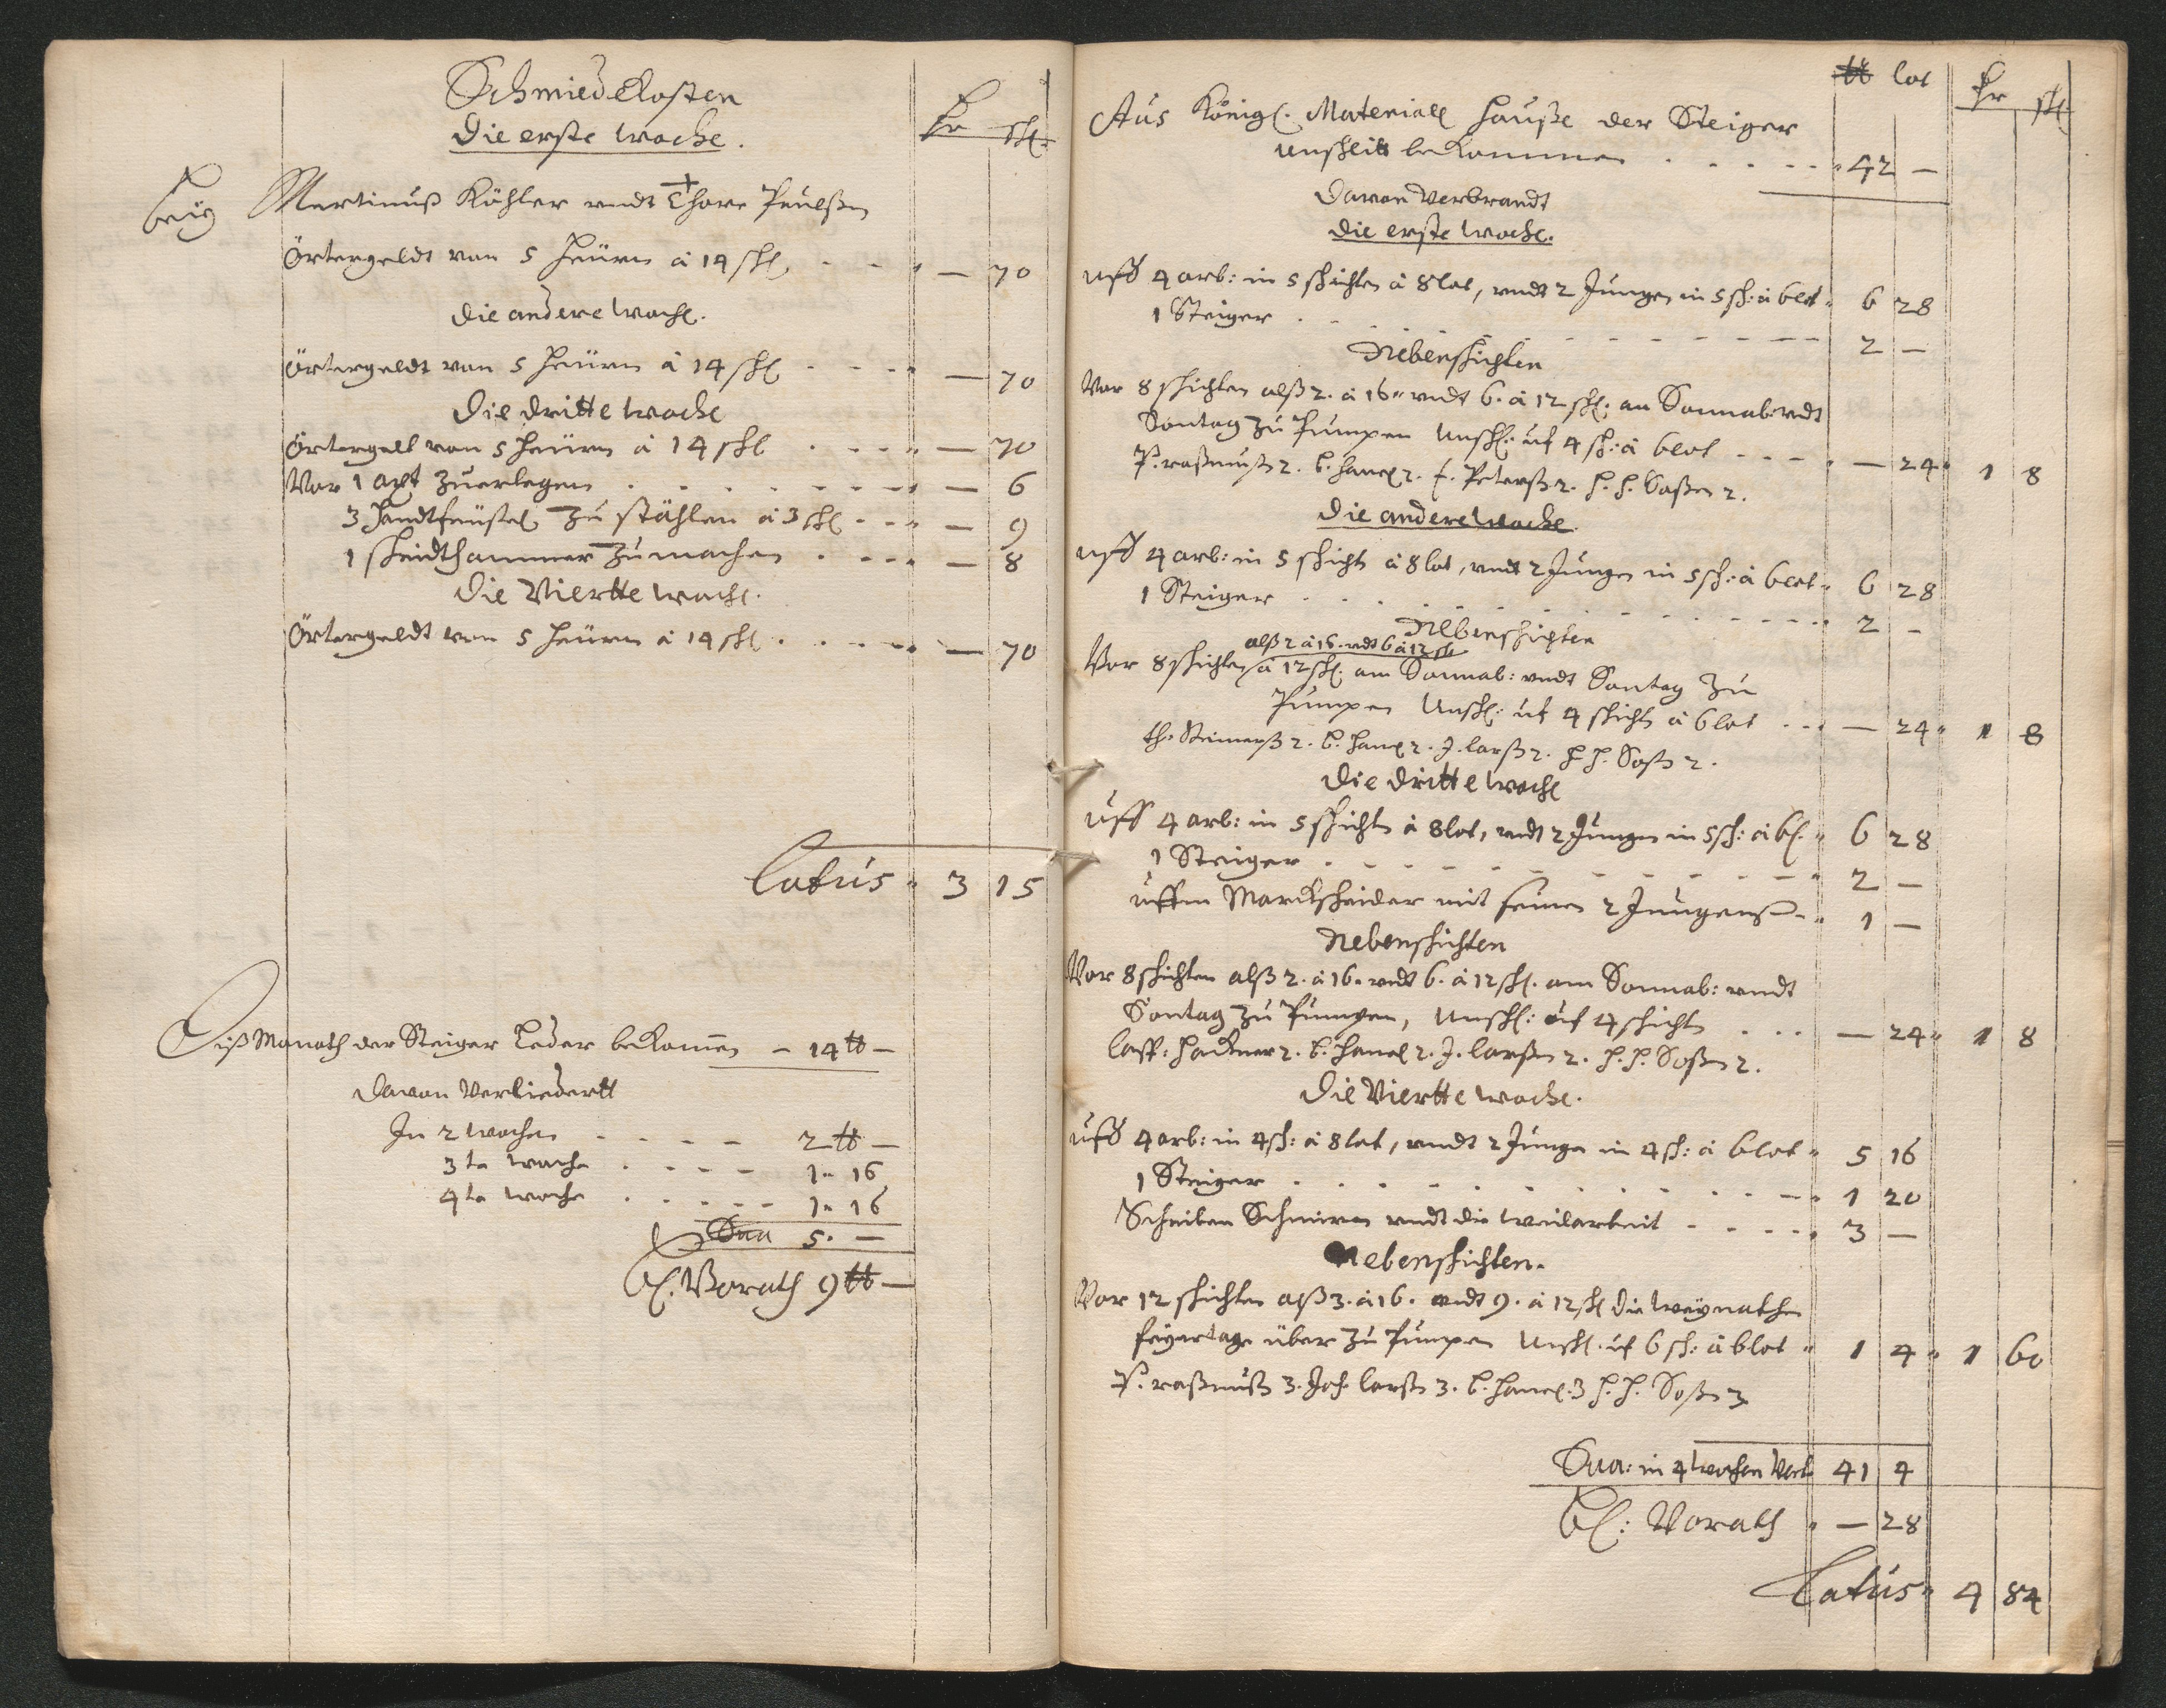 Schmiedekosten
Die erste Woche.
Martinuß Köhler undt Thore Peülßen
Örtergeldt von 5 Heüern à 14 schl — 70
Die andere Woche.
Örtergeldt von 5 Heüern à 14 schl — 70
Die dritte Woche
Örtergelt von 5 Heüern à 14 schl — 70
Vor 1 axt zuerlegen — 6
3 Handtfeüstel zu stählen à 3 schl — 9
1 scheidthammer zu machen — 8
Die Viertte Woche.
Örtergeldt von 5 Heüern à 14 schl — 70
Latus 3 15
Diß Monath der Steiger Leder bekomen — 14 ℔ —
Davon Verliedertt
In 2 Wochen 2 ℔ —
3te Woche 1 16
4te Woche 1 16
Sua 5. —
Bl. Vorath 9 ℔ —
℔ lot
Aus Königl. Materiall Hauße der Steiger
Unschlitt bekommen 42 —
Davon Verbrandt
Die erste Woche.
Uff 4 arb: in 5 schichten à 8 lot, undt 2 Jungen in 5 sch: à 6 lot 6 28
1 Steiger 2 —
Nebenschichten
Vor 8 schichten alß 2. à 16 undt 6. à 12 schl. am Sonnab undt
Sontag zu Pumpen Unschl: uf 4 sch: à 6 lot — 24 1 8
P. raßmuß 2. 2. Peterß 2. H. H. Soßen 2.
Die andere Woche
Uff 4 arb: in 5 schicht à 8 lot, undt 2 Jungen in 5 sch: à 6 lot 6 28
1 Steiger 2 —
Nebenschichten
alß 2 à 16. undt 6 à 12 sch
Vor 8 schichten à 12 schl. am Sonnab: undt Sontag zu
Pumpen Unschl: uf 4 schicht à 6 lot — 24 1 8
2. 2. J. Larß 2. H. H. Soß 2.
Die dritte Woche
Uff 4 arb: in 5 schicht à 8 lot, undt 2 Jungen in 5 sch: à 6 l. 6 28
1 Steiger 2 —
uffm Marckscheider mit seinen 2 Jungens 1 —
Nebenschichten
Vor 8 schichten alß 2. à 16. undt 6. à 12 schl. am Sonnab: undt
Sontag zu Pumpen, Unschl: uf 4 schicht — 24 1 8
2. 2. J. Larßen 2. H. H. Soßen 2.
Die Viertte Woche.
Uff 4 arb: in 4 sch: à 8 lot, undt 2 Junge in 4 sch: à 6 lot 5 16
1 Steiger 1 20
Scheiben Schmiren undt die Weilarbeit 3 —
Nebenschichten.
Vor 12 schichten alß 3. à 16. undt 9. à 12 schl die Weynathen
feyertage über zu Pumpen Unschl. uf 6 sch: à 6 lot 1 4 1 60
P. raßmuß 3. Joh Larß 3. 3 H. H. Soßen 3
Sua: in 4 Wochen Verb 41 4
Bl: Vorath — 28
Latus 4 84